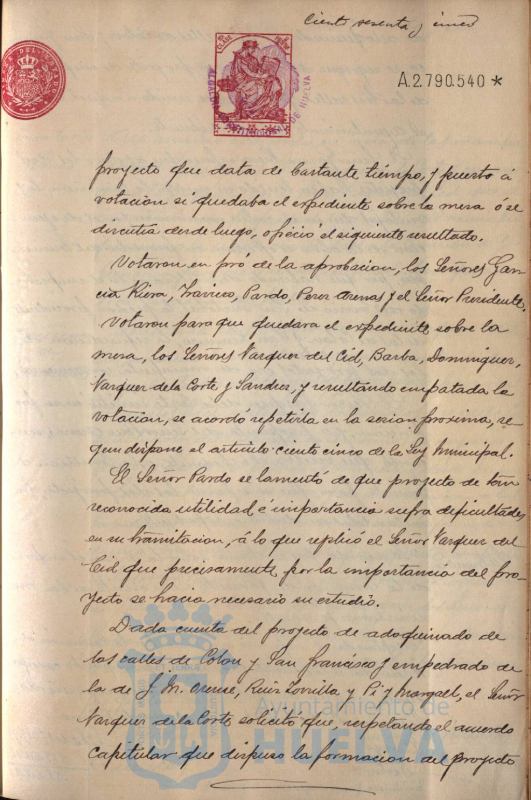 Ciento sesenta y cinco
A.2.790.540 *
proyecto que data de bastante tiempo, y puesto á
votacion si quedaba el expediente sobre la mesa ó se
discutia desde luego, ofreció el siguiente resultado.
Votaron en pró de la aprobacion, los Señores Gar-
cia Riera, Pardo, Perez Arenas y el Señor Presidente.
Votaron para que quedara el expediente sobre la
mesa, los Señores Vazquez del Cid, Barba, Dominguez,
Vazquez de la Corte y Sanchez, y resultando empatada la
votacion, se acordó repetirla en la sesion proxima, se-
gun dispone el articulo ciento cinco de la Ley Municipal.
El Señor Pardo se lamentó de que proyecto de tan
reconocida utilidad é importancia sufra dificultades
en su tramitacion, á lo que replicó el Señor Vazquez del
Cid que precisamente por la importancia del pro-
yecto se hacia necesario su estudio.
Dada cuenta del proyecto de adoquinado de
las calles de Colon y San Francisco y empedrado de
la de J. M. Orense, Ruiz Zorrilla y Pi y Margall, el Señor
Vazquez de la Corte solicitó que, respetando el acuerdo
capitular que dispuso la formacion del proyecto
Ayuntamiento de
HUELVA